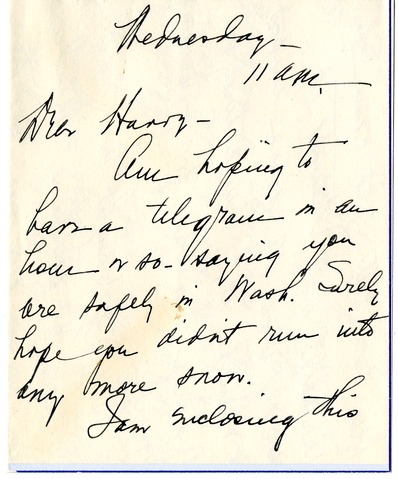 Wednesday -
11 am.
Dear Harry -
Am hoping to
have a telegram in an
hour or so - saying you
were safely in Wash. Surely
hope you didn't run into
any more snow.
I am enclosing this